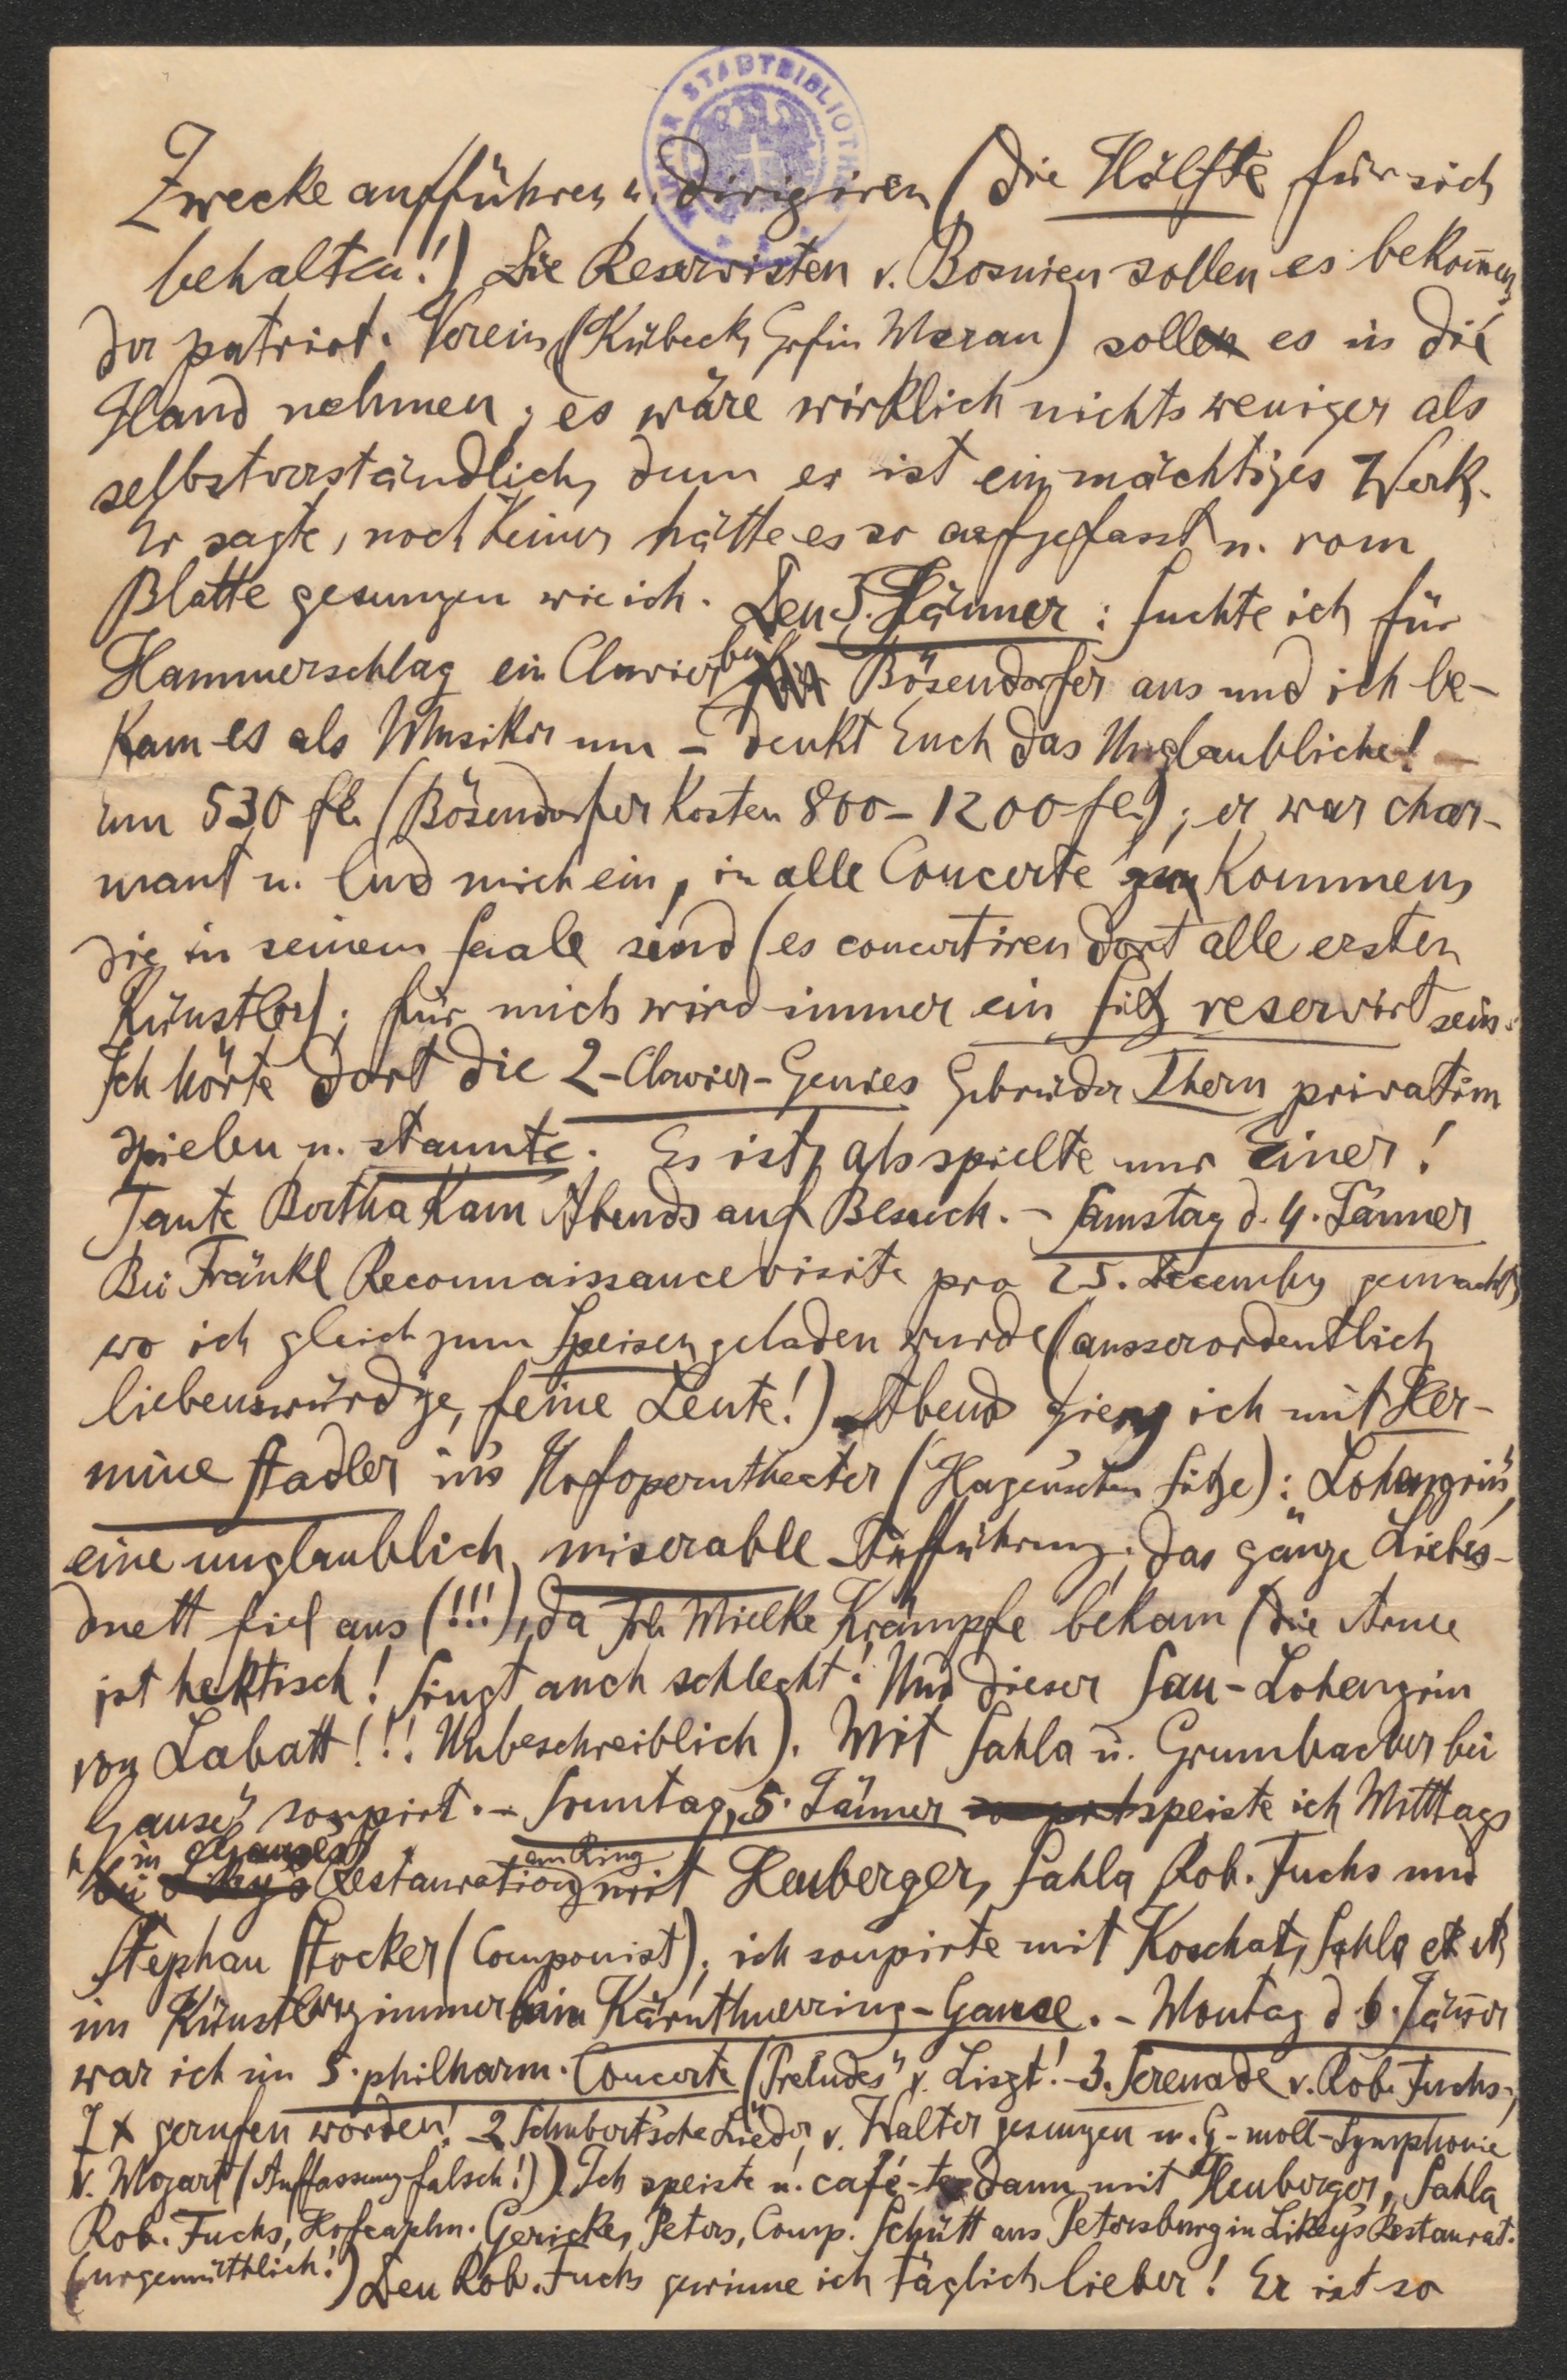 WIENER STADTBIBLIOTHEK
Zwecke aufführen u. dirigiren (die Hälfte für sich
behalten!) Die Reservisten v. Bosnien sollen es bekom̄en,
der patriot. Verein (Kübeck, Gräfin Meran) sollen es in die
Hand nehmen; es wäre wirklich nichts weniger als
selbstverständlich, denn es ist ein mächtiges Werk.
Er sagte, noch Keiner hätte es so aufgefasst u. vom
Blatte gesungen wie ich. Den 3. Jänner: suchte ich für
Hammerschlag ein Clavier bei Bösendorfer aus und ich be-
kam es als Musiker um – denkt Euch das Unglaubliche! –
um 530 fl. (Bösendorfer kosten 800–1200 fl.); er war char-
mant u. lud mich ein, in alle Concerte zu kommen,
die in seinem Saale sind (es concertiren dort alle ersten
Künstler); für mich wird immer ein Sitz reservirt sein.
Ich hörte dort die 2-Clavier-Genies Gebrüder Thern privatim
spielen u. staunte. Es ist, als spielte nur Einer!
Tante Bertha kam Abends auf Besuch. – Samstag d. 4. Jänner
Bei Fränkl Reconnaissancevisite pro 25. December gemacht,
wo ich gleich zum Speisen geladen wurde (ausserordentlich
liebenswürdge, feine Leute!) Abend gieng ich mit Her-
mine Stadler in's Hofoperntheater (Hagen'schen Sitze): „Lohengrin",
eine unglaublich miserable Aufführung; das ganze Liebes-
duett fiel aus (!!!), da Frl. Mielke Krämpfe bekam (die Arme
ist hektisch! Singt auch schlecht! Und dieser Sau-Lohengrin
von Labatt!!! Unbeschreiblich). Mit Sahla u. Grumbacher bei
„Gause" soupirt. – Sonntag, 5. Jänner speiste ich Mittags
in „Gause's" Restauration am Ring mit Heuberger, Sahla Rob. Fuchs und
Stephan Stocker (Componist); ich soupirte mit Koschat, Sahla etc etc
im Künstlerzimmer beim Kärnthnerring-Gause. – Montag d 6. Jän̄er
war ich im 5. philharm. Concerte („Preludes" v. Liszt! – 3. Serenade v. Rob. Fuchs,
7 x gerufen worden! 2 Schubert'sche Lieder v. Walter gesungen u. G-moll-Symphonie
v. Mozart (Auffassung falsch!)) Ich speiste u. café-te dann mit Heuberger, Sahla
Rob. Fuchs, Hofcaplm. Gericke, Peters, Comp. Schütt aus Petersburg in Likey's Restaurat.
(urgemüthlich!) Den Rob. Fuchs gewinne ich täglich lieber! Er ist so